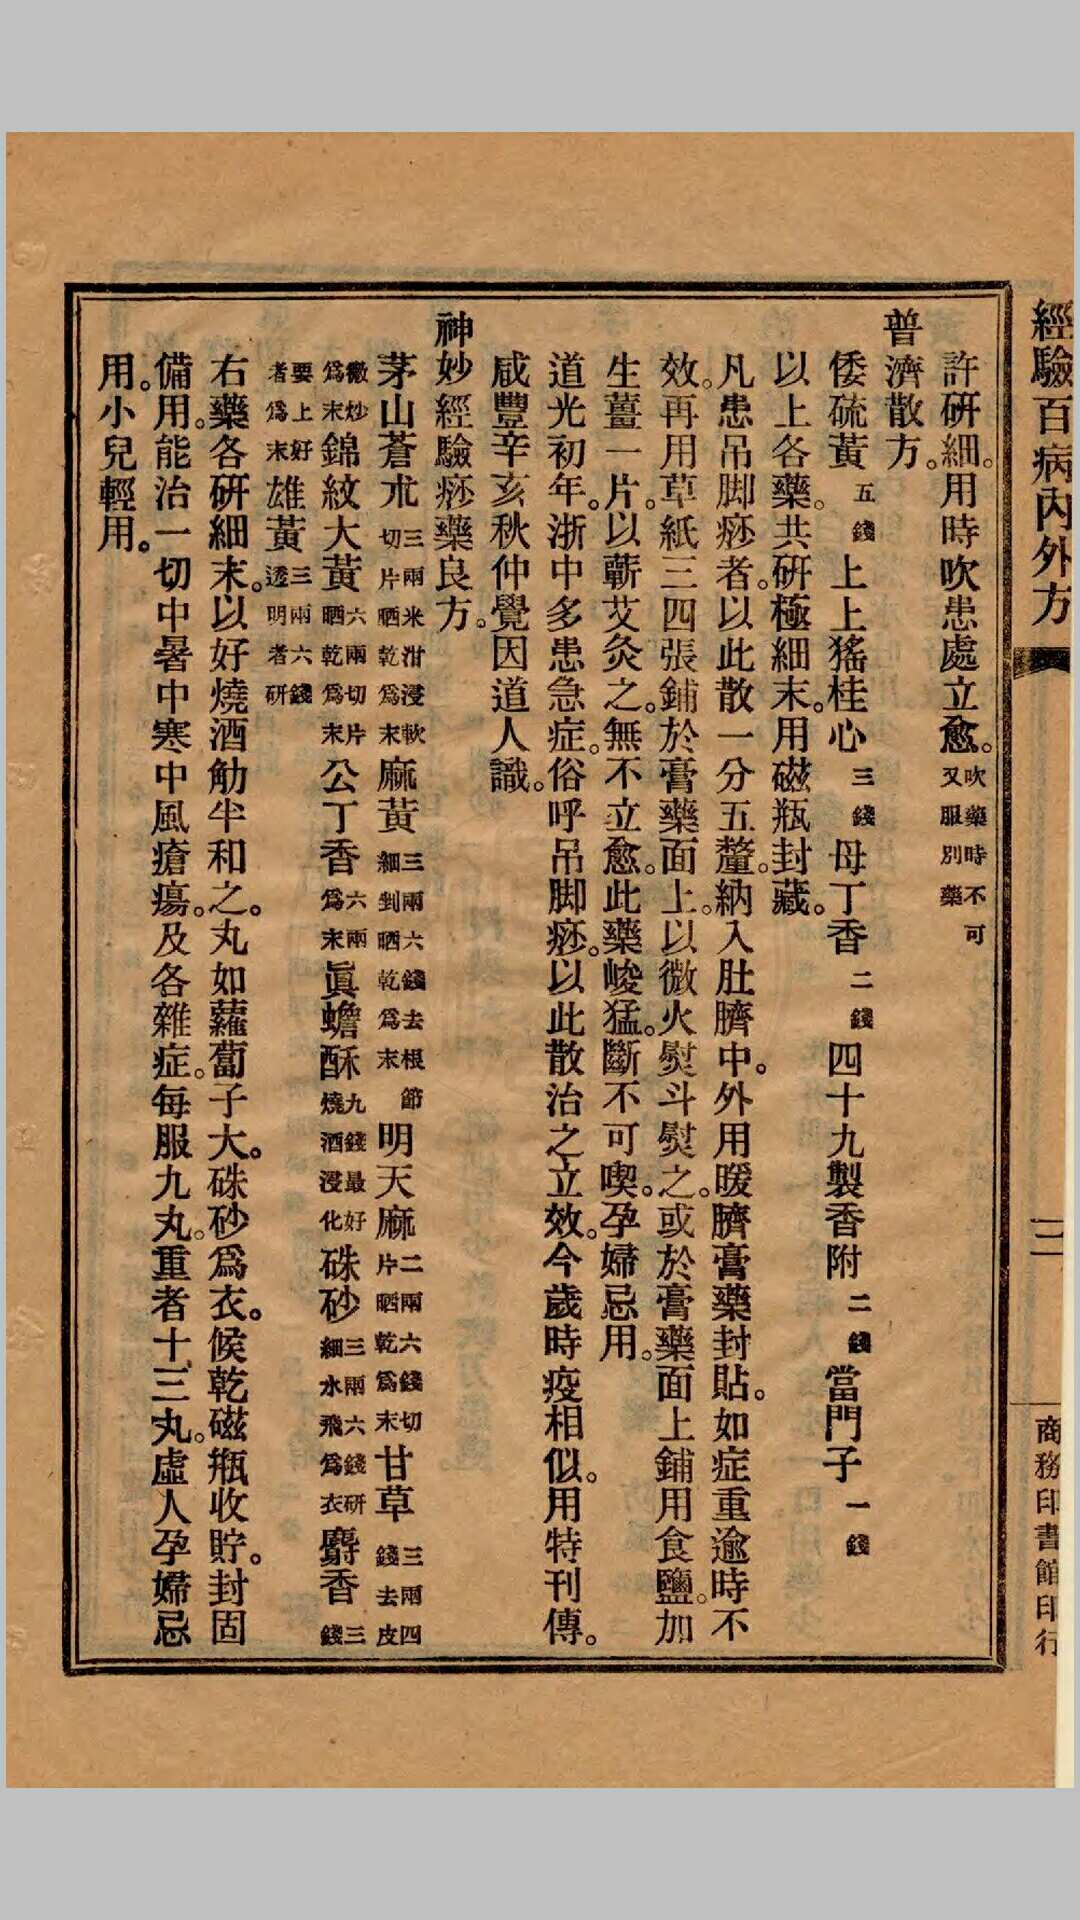 經驗百病內外方
三
商務印書館印行
許研細。用時吹患處立愈。吹藥時不可又服別藥
普濟散方。
倭硫黃五錢上上猺桂心三錢母丁香二錢四十九製香附二錢當門子一錢
以上各藥。共研極細末。用磁瓶封藏。
凡患吊脚痧者。以此散一分五釐。納入肚臍中。外用暖臍膏藥封貼。如症重逾時不
效。再用草紙三四張鋪於膏藥面上。以微火熨斗熨之。或於膏藥面上鋪用食鹽。加
生薑一片。以蘄艾灸之。無不立愈。此藥峻猛。斷不可喫。孕婦忌用。
道光初年。浙中多患急症。俗呼吊脚痧。以此散治之立效。今歲時疫相似。用特刊傳。
咸豐辛亥秋仲覺因道人識。
神妙經驗痧藥良方。
茅山蒼朮三兩米泔浸軟切片晒乾為末麻黃三兩六錢去根節細剉晒乾為末明天麻二兩六錢切片晒乾為末甘草三兩四錢去皮
微炒為末錦紋大黃六兩切片晒乾為末公丁香六兩為末眞蟾酥九錢最好燒酒浸化硃砂三兩六錢研細水飛為衣麝香三錢
要上好者為末雄黃三兩六錢透明者研
右藥各研細末。以好燒酒觔半和之。丸如蘿蔔子大。硃砂爲衣。候乾磁瓶收貯。封固
備用。能治一切中暑中寒中風瘡瘍。及各雜症。每服九丸。重者十三丸。虛人孕婦忌
用。小兒輕用。